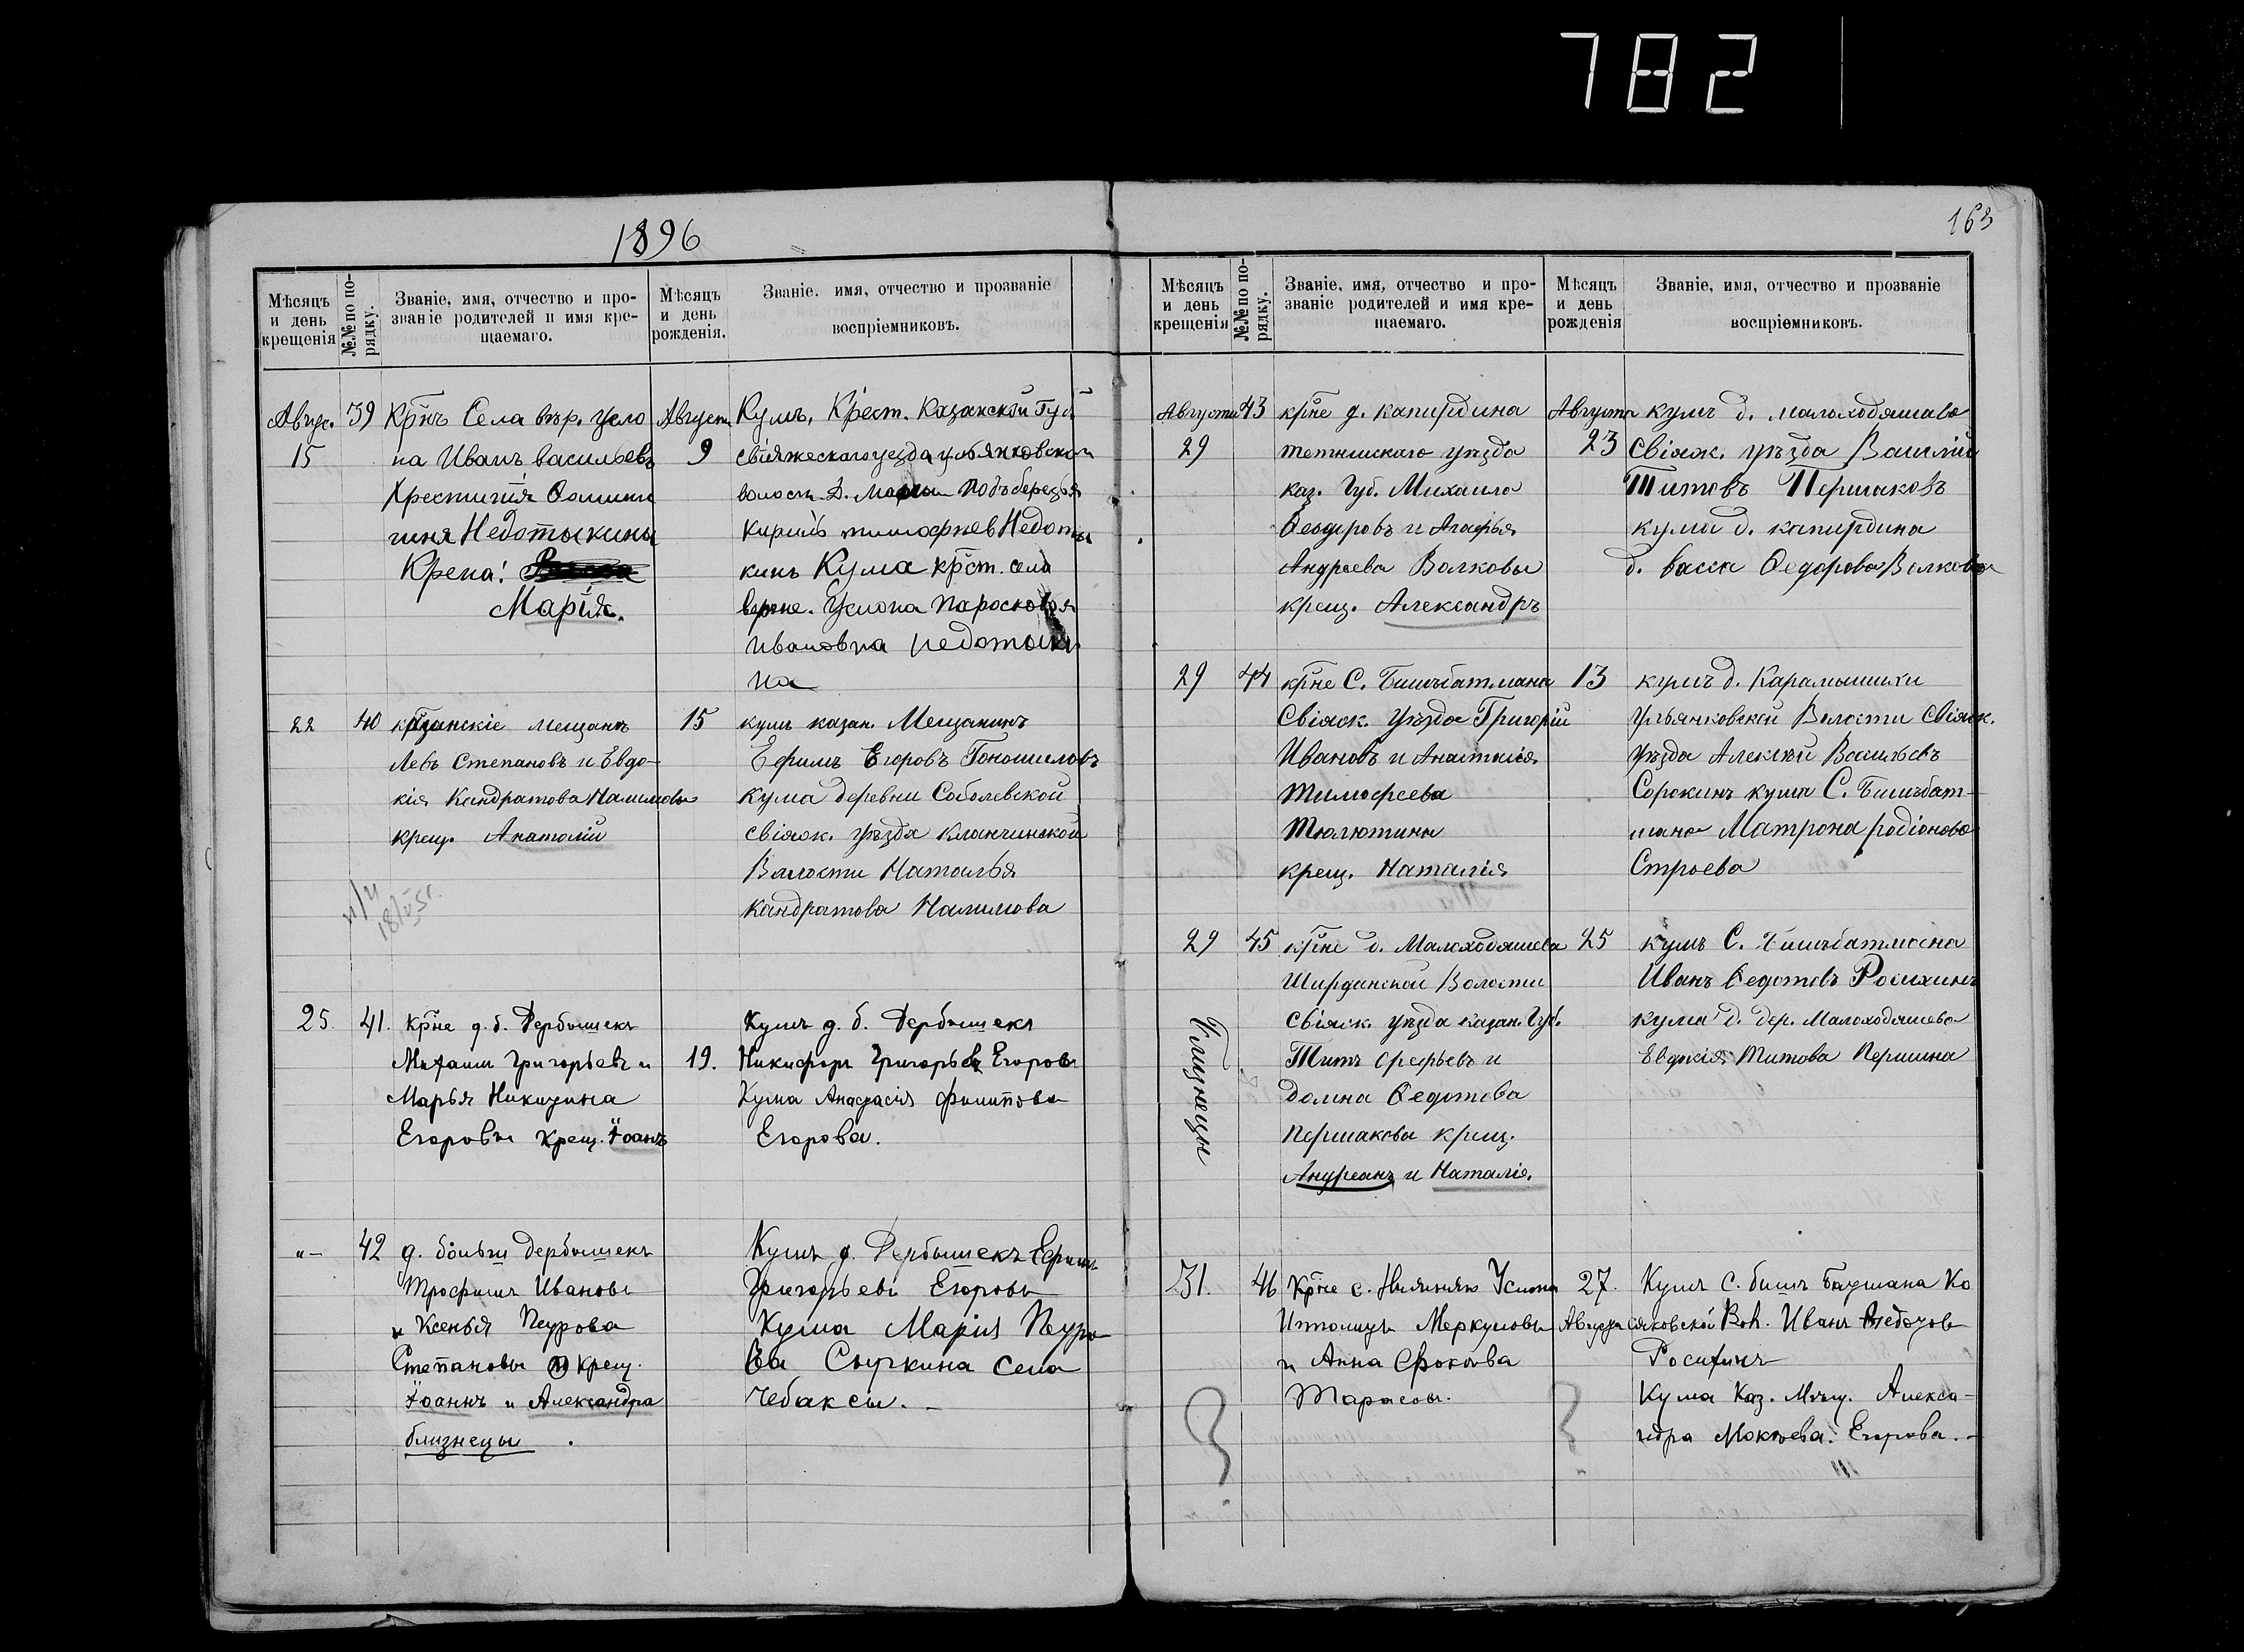 782
1896
163
Мѣсяцъ и день крещенія
№№ по порядку.
Званіе, имя, отчество и прозваніе родителей и имя крещаемаго.
Мѣсяцъ и день рожденія.
Званіе, имя, отчество и прозваніе воспріемниковъ.
Авгус. 15
39
Крнъ Села вер. Усло
на Иванъ Васильевъ
Недотыкины
Крепа:
Марія.
Августа 9
Кумъ, Крест. Казанской Губ
свіяжескаго уезда ульянковской
волости Д.
Недоты
кинъ Кума крст. села
Услона Парасковья
Ивановна Недотыки
на
22
40
казанскіе мещане
Левъ Степановъ и Евдо-
кія Кандратова Налимовы
крещ. Анатолій
15
кумъ казан. Мещанинъ
Ефимъ Егоровъ
Кума деревни Соболевской
свіяж. уѣзда
Волости Наталья
Кандратова Налимова
25.
41.
Крне д. б. Дербышекъ
Михаилъ Григорьевъ и
Марья Никитина
Егоровы крещ. Іоаннъ
19.
Кумъ д. б. Дербышекъ
Никифоръ Григорьевъ Егоровъ
Кума Анастасія Филипова
Егорова.
"–
42
д. больш Дербышекъ
Трофимъ Ивановъ
и Ксенья Петрова
Степановы крещ.
Іоаннъ и Александра
близнецы.
Кумъ д. Дербышекъ Ефимъ
Григорьевъ Егоровъ
Кума Марія Петро
ва Сыркина села
Чебаксы. –
Мѣсяцъ и день крещенія
№№ по порядку.
Званіе, имя, отчество и прозваніе родителей и имя крещаемаго.
Мѣсяцъ и день рожденія
Званіе, имя, отчество и прозваніе воспріемниковъ.
Августа 29
43
крне д. капирдина
тетюшскаго уѣзда
каз. Губ. Михаилъ
Феодоровъ и Агафья
Андреева Волковы
крещ. Александръ
Августа 23
кумъ д. малоходяшево
Свіяж. уѣзда Василій
Титовъ Першаковъ
кума д. капирдина
д. васса Федорова Волкова
29
44
крне С. Бишъбатмана
Свіяж. Уѣзда Григорій
Ивановъ и Анастасія
Тимофеева
Тюлютины
крещ. Наталія
13
кумъ д. Карамышихи
Ульянковской Волости Свіяж.
уѣзда Алексѣй Васильевъ
Сорокинъ кума С. Бишъбат-
мана Матрона родіонова
Строева
29
45
Близнецы
крне д. Малоходяшева
Ширданской Волости
Свіяж. уѣзда казан. Губ.
Титъ Ефефьевъ и
Домна Федотова
Першаковы крещ.
Андреанъ и Наталія.
25
кумъ С. Бишъбатмана
Иванъ Федотовъ Росихинъ
кума д. дер. Малоходяшева
Евдокія Титова Першина
31.
46
Крне с. Нижняго Услона
Ипполитъ Меркуловъ
и Анна Фокеева
Тарасовы.
27. Августа
Кумъ С. бишъ Батмана Ко
сяковской Вол. Иванъ Федотовъ
Росихинъ
Кума Каз. Мѣщ. Алекса-
ндра Мокеева. Егорова. –